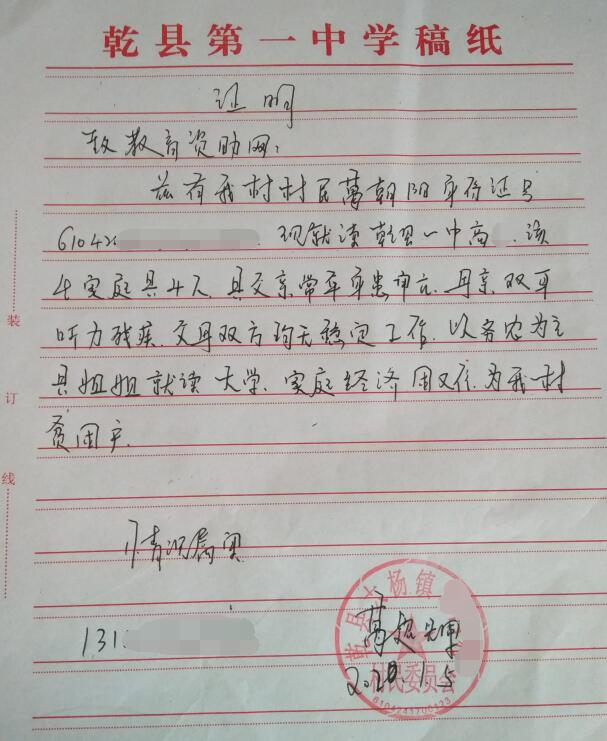 乾县第一中学稿纸
证明
致教育资助网:
兹有我村村民萬朝阳身份证号
6104 现就读乾县一中高 该
生家庭共4人,其父亲常年身患 母亲双耳
听力残疾.父母双方均无稳定工作.以务农为主
其姐姐就读大学.家庭经济困难.为我村
贫困户.
情况属实
131
2020.1.5
杨镇
村民委员会
装
订
线